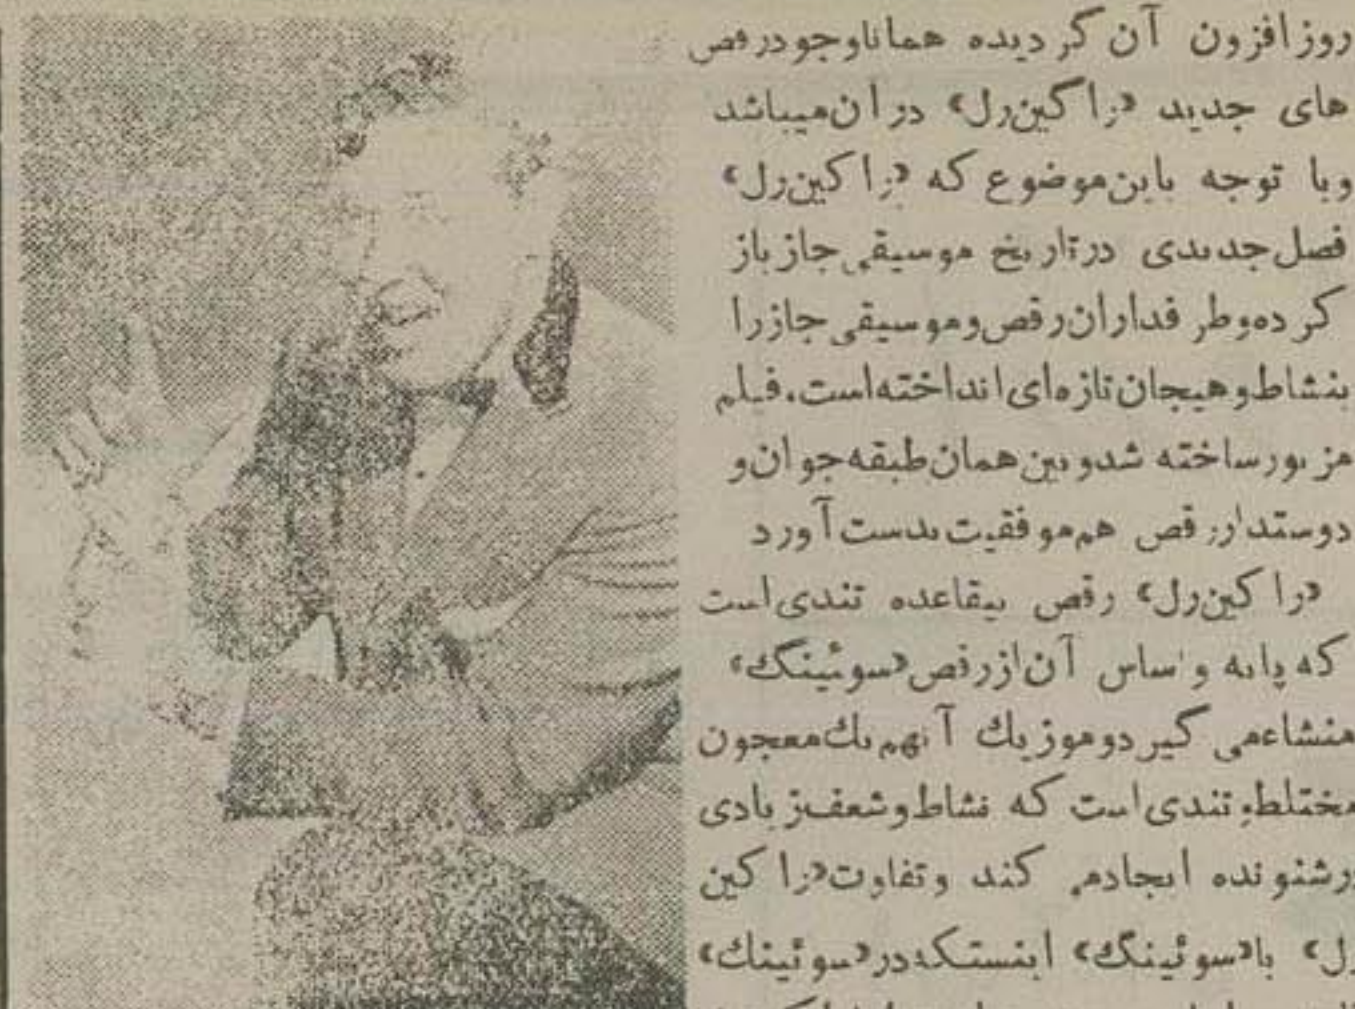 روز افزون آن گردیده همانا وجود رقص
های جدید «راکین‌رل» در آن میباشد
وبا توجه باین موضوع که «راکین‌رل»
فصل جدیدی در تاریخ موسیقی جاز باز
کرده و طرفداران رقص و موسیقی جاز را
بنشاط و هیجان تازه‌ای انداخته است، فیلم
مزبور ساخته شد و بین همان طبقه جوان و
دوستدار رقص هم موفقیت بدست آورد
«راکین‌رل» رقص بیقاعده تندی است
که پایه و اساس آن از رقص «سوئینگ»
منشاء می گیرد و موزیك آنهم یك معجون
مختلط و تندی است که نشاط و شعف زیادی
درشنونده ایجاد می کند و تفاوت «راکین
رل» با «سوئینگ» اینستکه در «سوئینك»